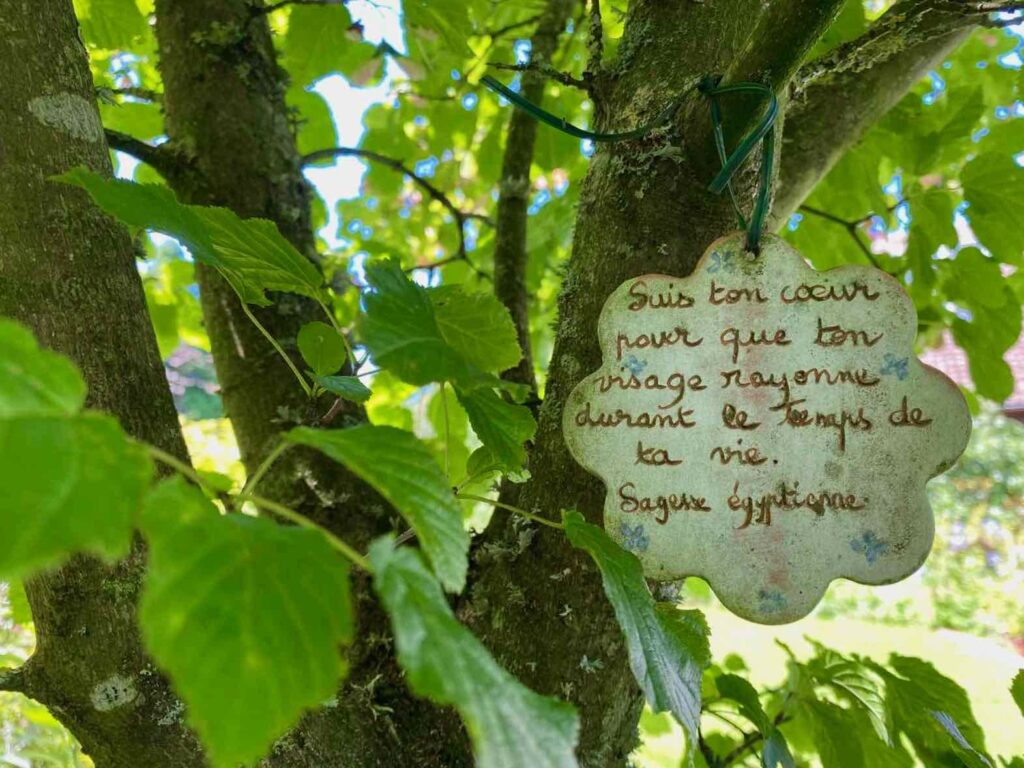 Suis ton cœur
pour que ton
visage rayonne
durant le temps de
ta vie.
Sagesse égyptienne.